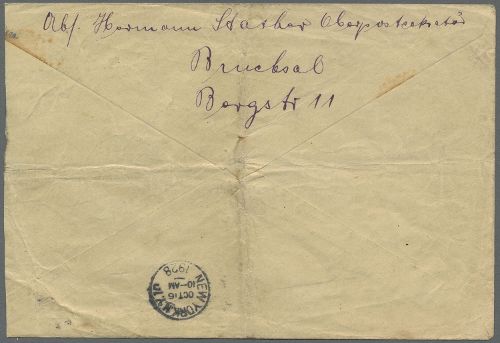 Abs. Hermann Stather Oberpostsekretär
Bruchsal
Bergstr 11
NEW YORK, N.Y.
OCT 16
10-AM
1928